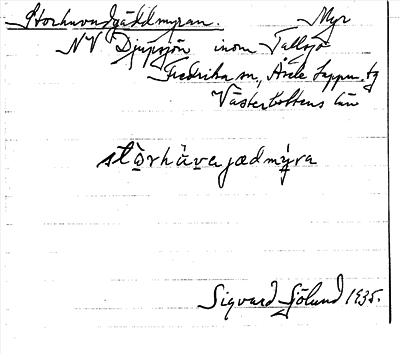 Storhuvudgäddmyran. Myr
NV Djupsjön inom Tallsjö
Fredrika sn, Åsele Lappm. tg
Västerbottens län
stờrhùvajædmýra
Sigvard Sjölund 1935.